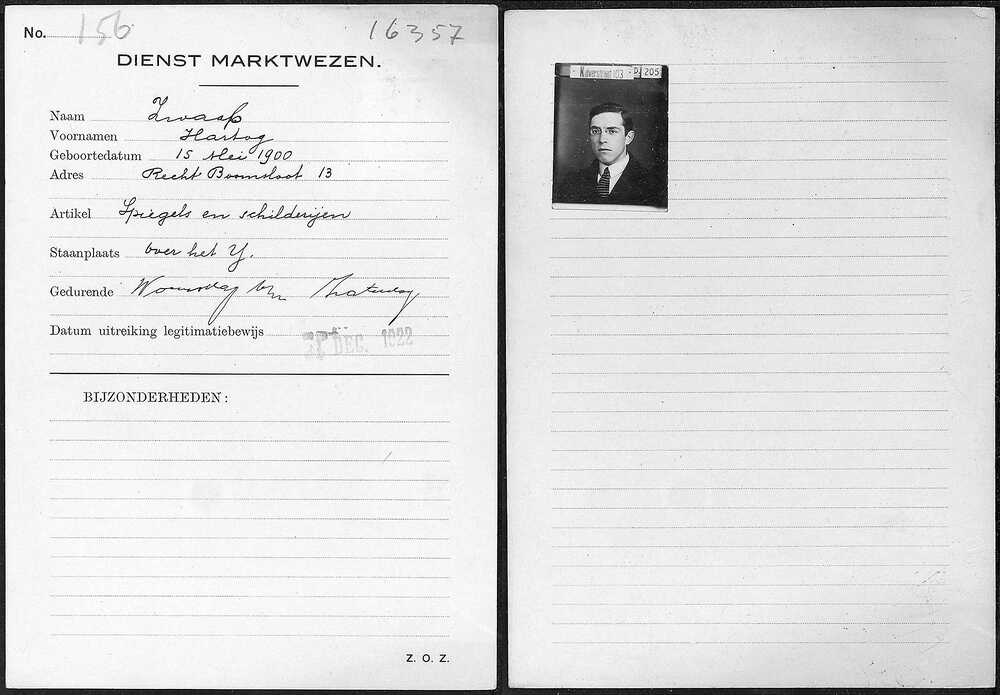 No. 156 16357
DIENST MARKTWEZEN.
Naam Zwaab
Voornamen Hartog
Geboortedatum 15 Mei 1900
Adres Recht Boomsloot 13
Artikel Spiegels en schilderijen
Staanplaats over het Y.
Gedurende Woensdag Zaterdag
Datum uitreiking legitimatiebewijs DEC. 1922
BIJZONDERHEDEN:
Z. O. Z.
Kalverstraat 103 - D. 205